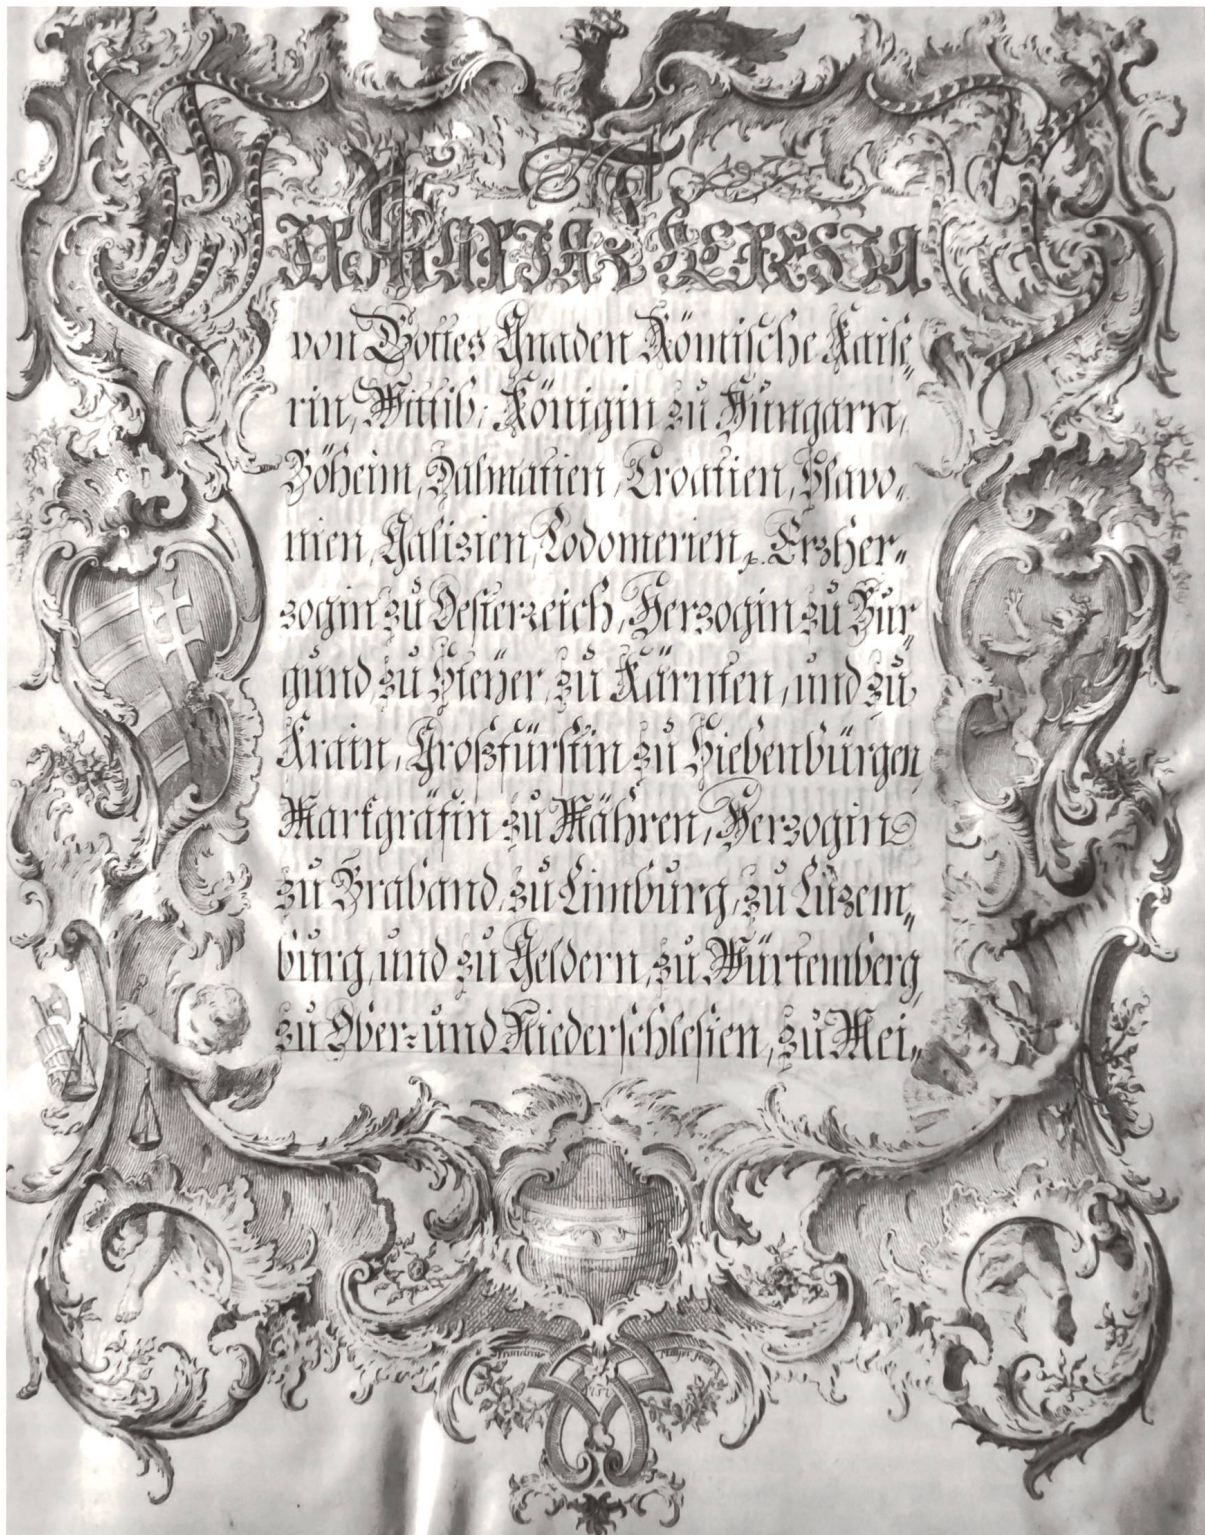 WIR MARIA THERESIA
von Gottes Gnaden Römische Kaise„
rin, Wittib, Königin zu Hungarn,
Böheim, Dalmatien, Croatien, Slavo„
nien, Galizien, Lodomerien, Erzher„
zogin zu Oesterreich, Herzogin zu Bur„
gund, zu Steyer, zu Kärnten, und zu
Krain, Großfürstin zu Siebenbürgen
Markgräfin zu Mähren, Herzogin
zu Braband, zu Limburg, zu Luzem„
burg, und zu Geldern, zu Würtemberg,
zu Ober= und Niederschlesien, zu Mei„